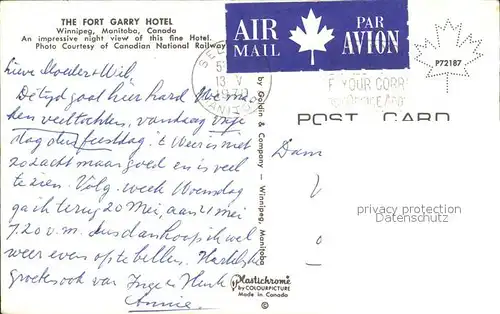 THE FORT GARRY HOTEL
Winnipeg, Manitoba, Canada
An impressive night view of this fine Hotel.
Photo Courtesy of Canadian National Railway
AIR MAIL
PAR AVION
P72187
YOUR CORR
POST CARD
Lieve Moeder + Wil,
De tijd gaat hier hard. We ma-
ken veel tochten, vandaag vrije
dag des feestdag! 't Weer is niet
zo zacht maar goed en is veel
te zien. Volg. week Woensdag
ga ik terug 20 Mei, aan 21 mei
7.20 v.m. dus dan hoop ik wel
weer even op te bellen. Hartelijke
groeten ook van Inge en Henk
Annie.
Dam
by Goldin & Company — Winnipeg, Manitoba
privacy protection
Datenschutz
Plastichrome®
by COLOURPICTURE
Made in Canada
©